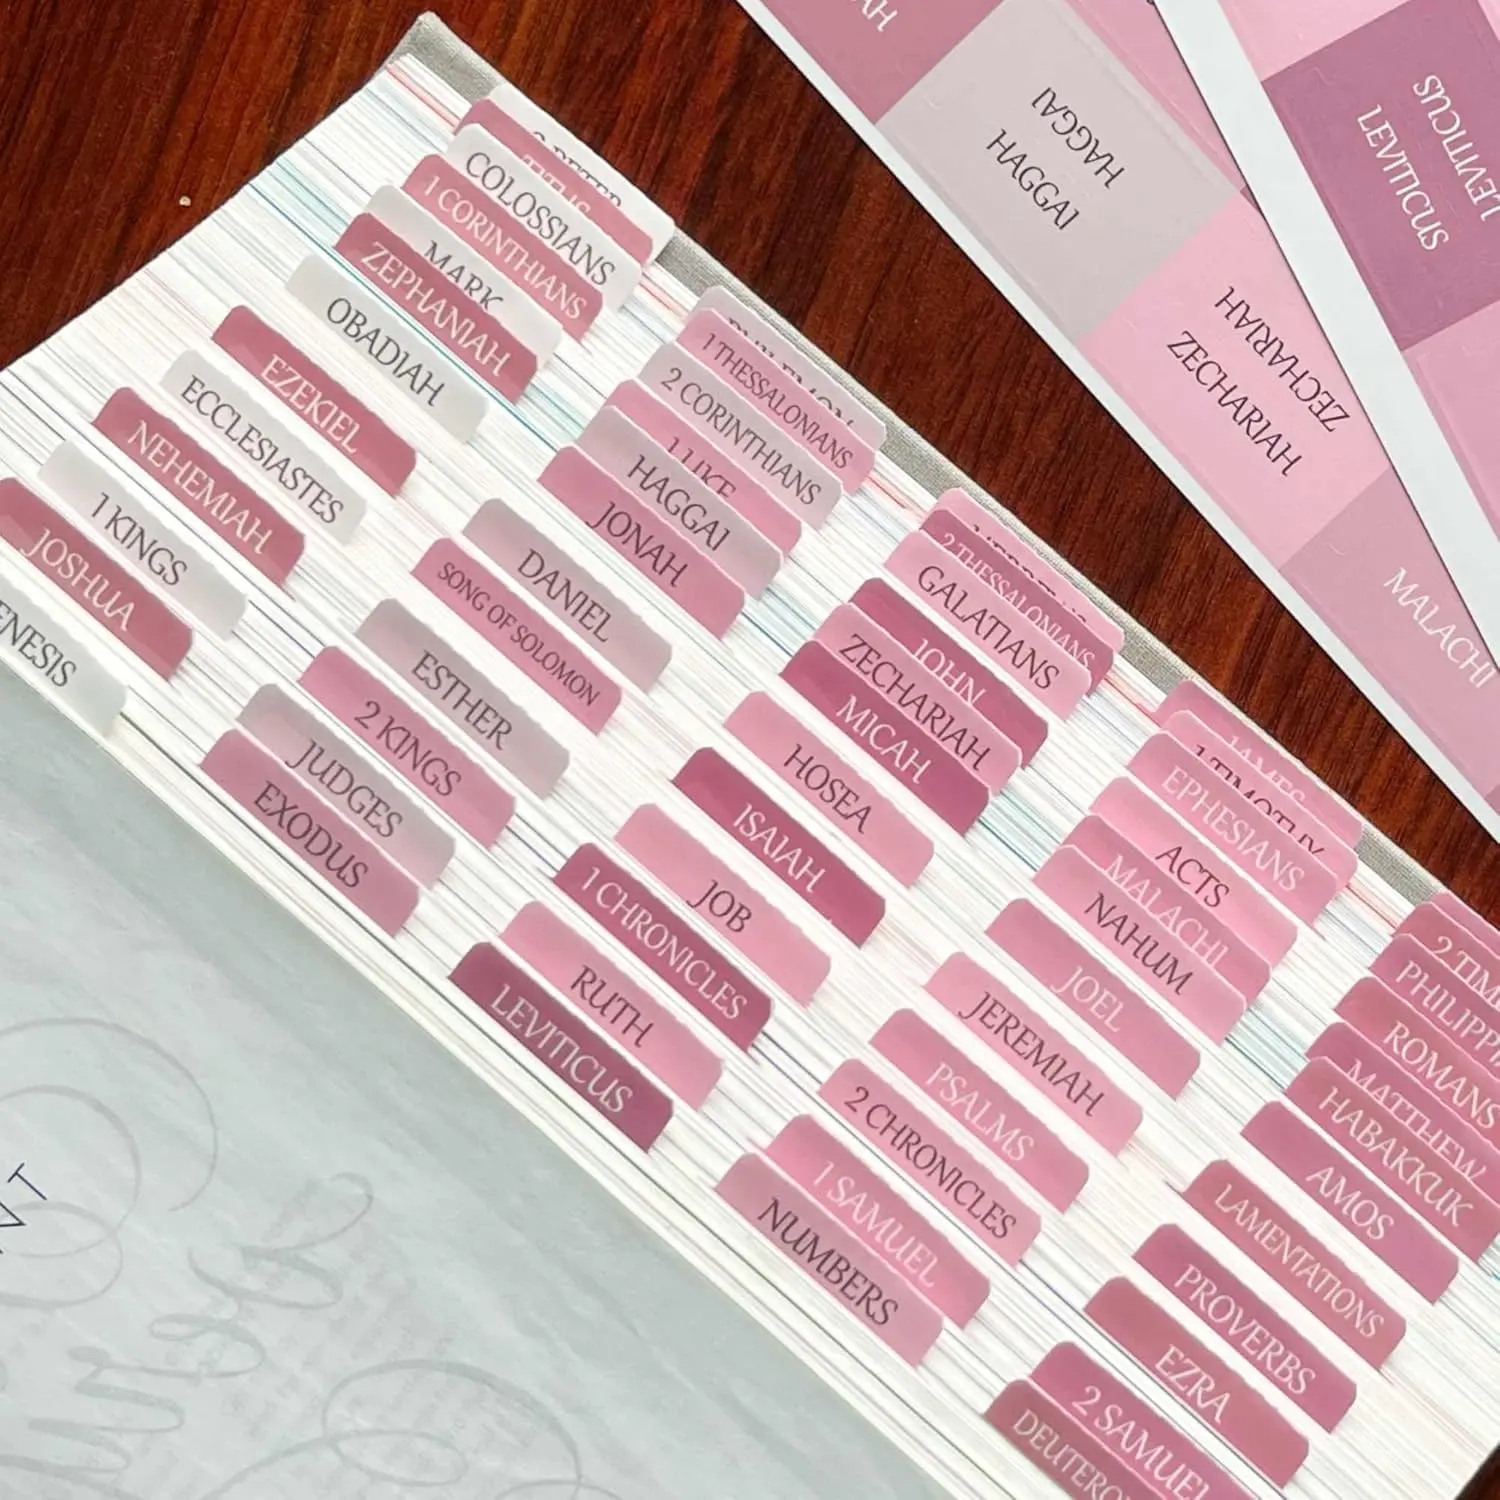 COLOSSIANS
1 CORINTHIANS
MARK
ZEPHANIAH
OBADIAH
EZEKIEL
ECCLESIASTES
NEHEMIAH
1 KINGS
JOSHUA
ENESIS
1 THESSALONIANS
2 CORINTHIANS
LUKE
HAGGAI
JONAH
DANIEL
SONG OF SOLOMON
ESTHER
2 KINGS
JUDGES
EXODUS
2 THESSALONIANS
GALATIANS
JOHN
ZECHARIAH
MICAH
HOSEA
ISAIAH
JOB
1 CHRONICLES
RUTH
LEVITICUS
JAMES
1 TIMOTHY
EPHESIANS
ACTS
MALACHI
NAHUM
JOEL
JEREMIAH
PSALMS
2 CHRONICLES
1 SAMUEL
NUMBERS
2 TIM
PHILIPPI
ROMANS
MATTHEW
HABAKKUK
AMOS
LAMENTATIONS
PROVERBS
EZRA
2 SAMUEL
DEUTERO
AH
HAGGAI
HAGGAI
ZECHARIAH
ZECHARIAH
MALACHI
LEVITICUS
LEVITICUS